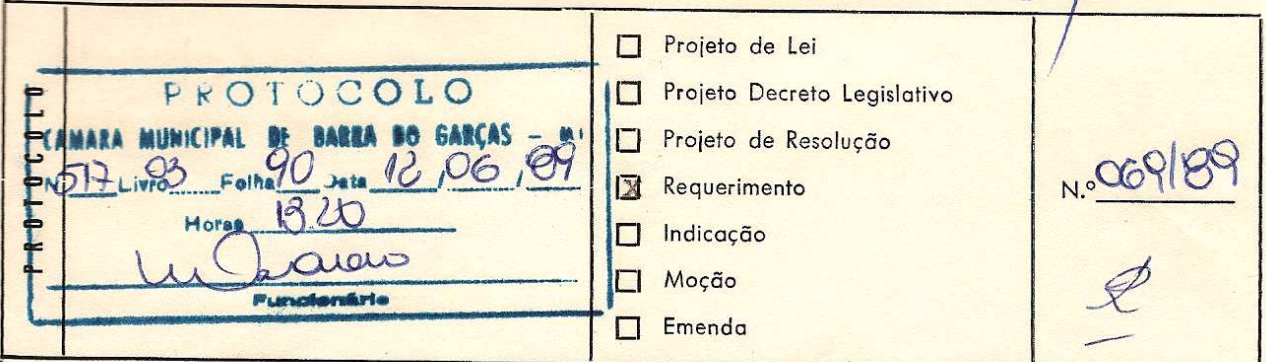 PROTOCOLO
PROTOCOLO
CAMARA MUNICIPAL DE BARRA DO GARÇAS -
Nº 517 Livro 03 Folha 90 Data 12,06,89
Horas 13.20
Funcionário
Projeto de Lei
Projeto Decreto Legislativo
Projeto de Resolução
X Requerimento
Indicação
Moção
Emenda
N.º 069/89